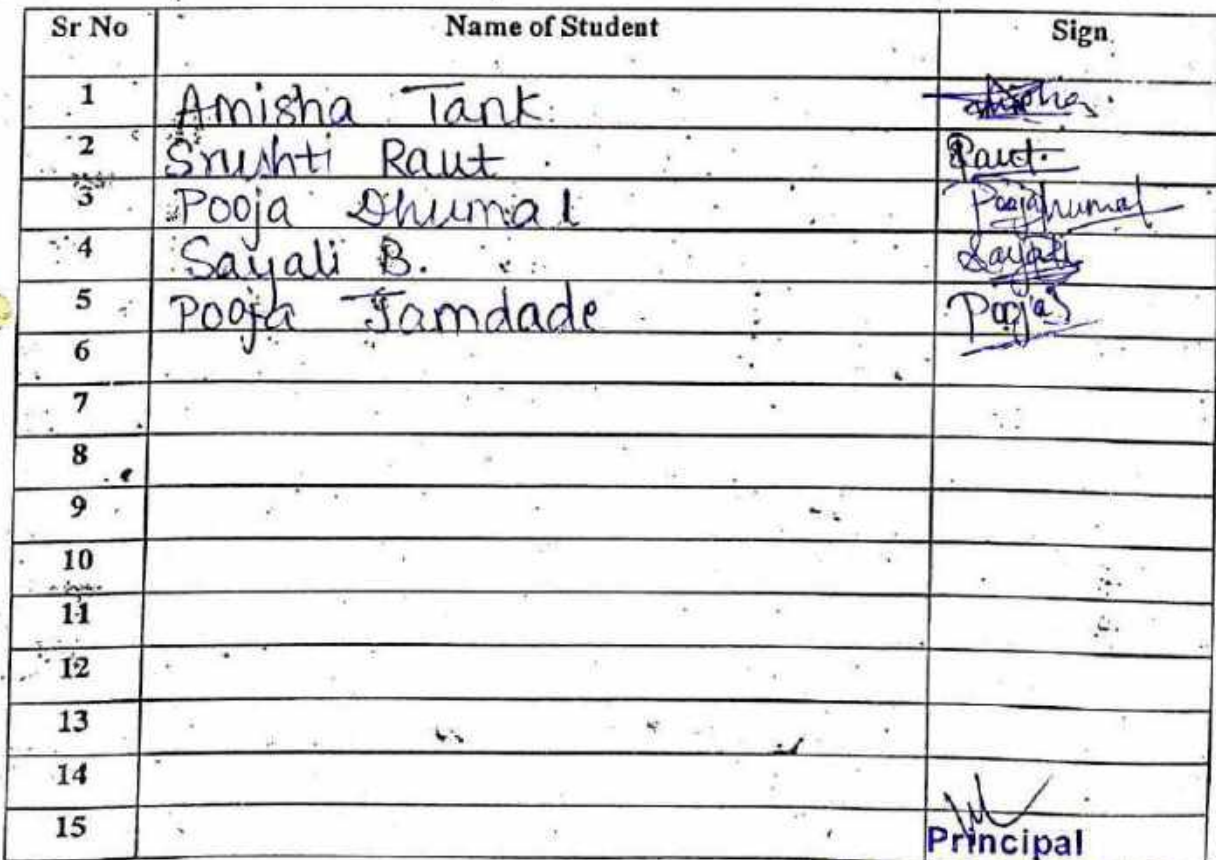 Sr No Name of Student Sign
1 Amisha Tank
2 Srushti Raut Raut.
3 Pooja Dhumal Poojahumal
4 Sayali B. Sayali
5 Pooja Jamdade PoojaJ
6
7
8
9
10
11
12
13
14
15 Principal